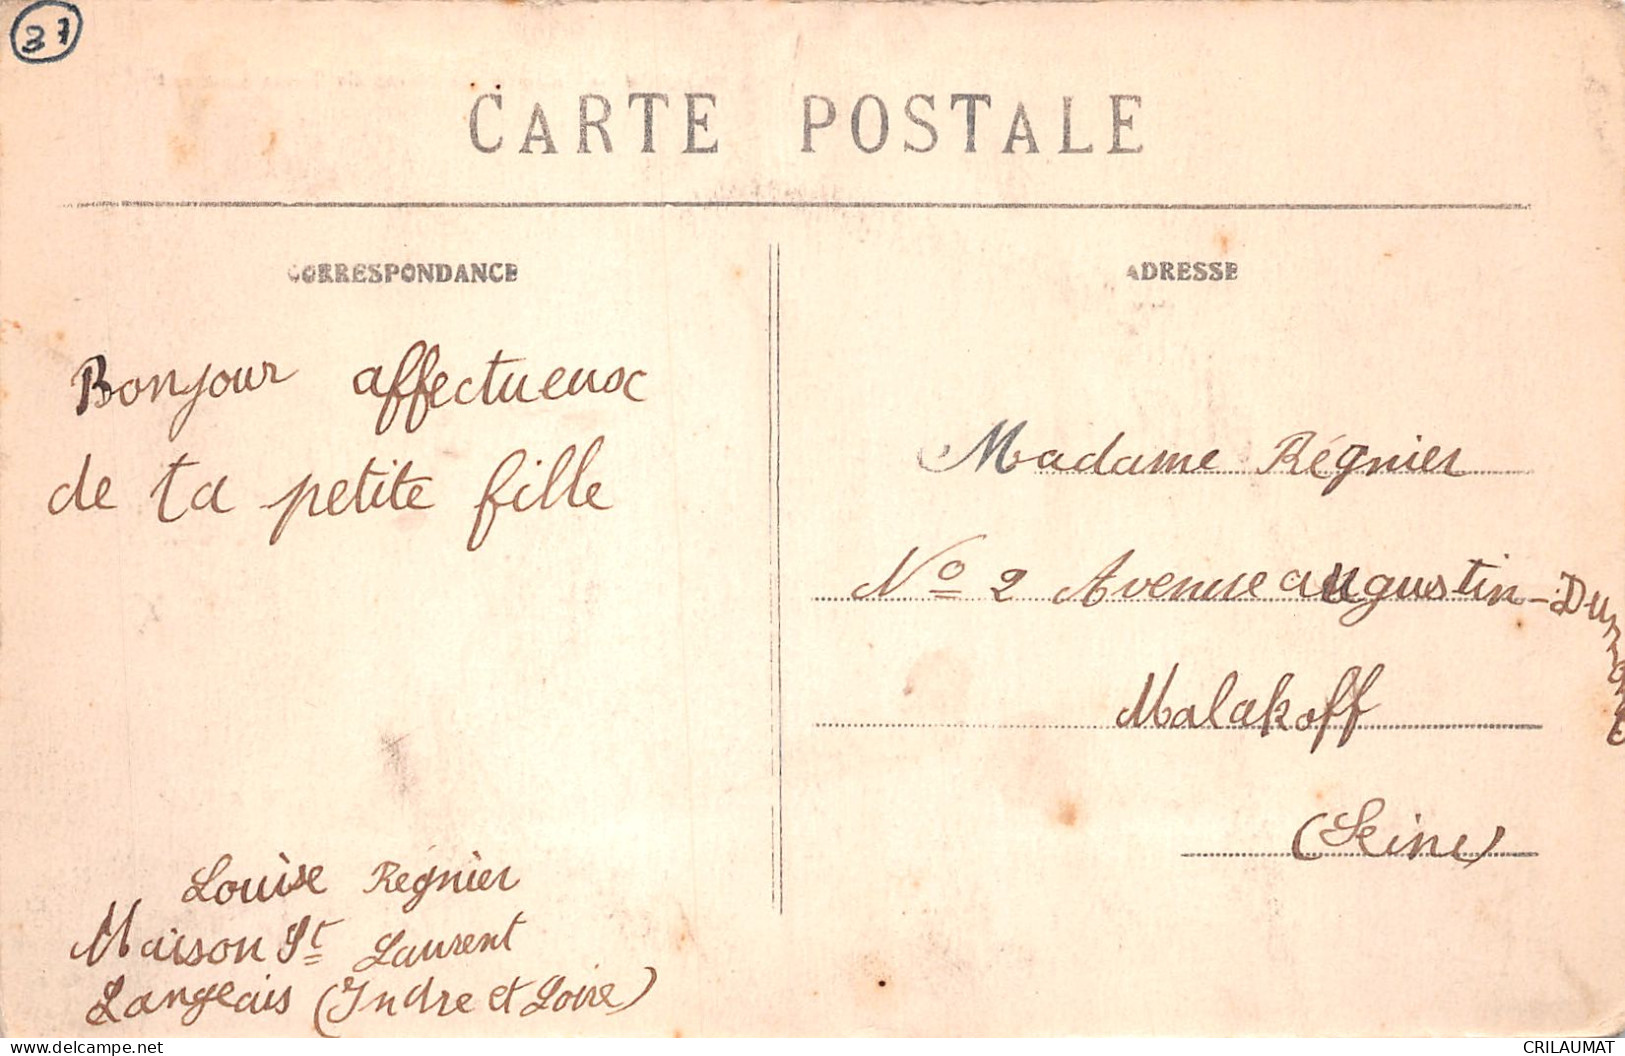 37
CARTE POSTALE
CORRESPONDANCE
ADRESSE
Bonjour affectueux
de ta petite fille
Louise Régnier
Maison St Laurent
Langeais (Indre et Loire)
Madame Régnier
No 2 Avenue augustin-Dumont
Malakoff
(Seine)
www.delcampe.net
CRILAUMAT